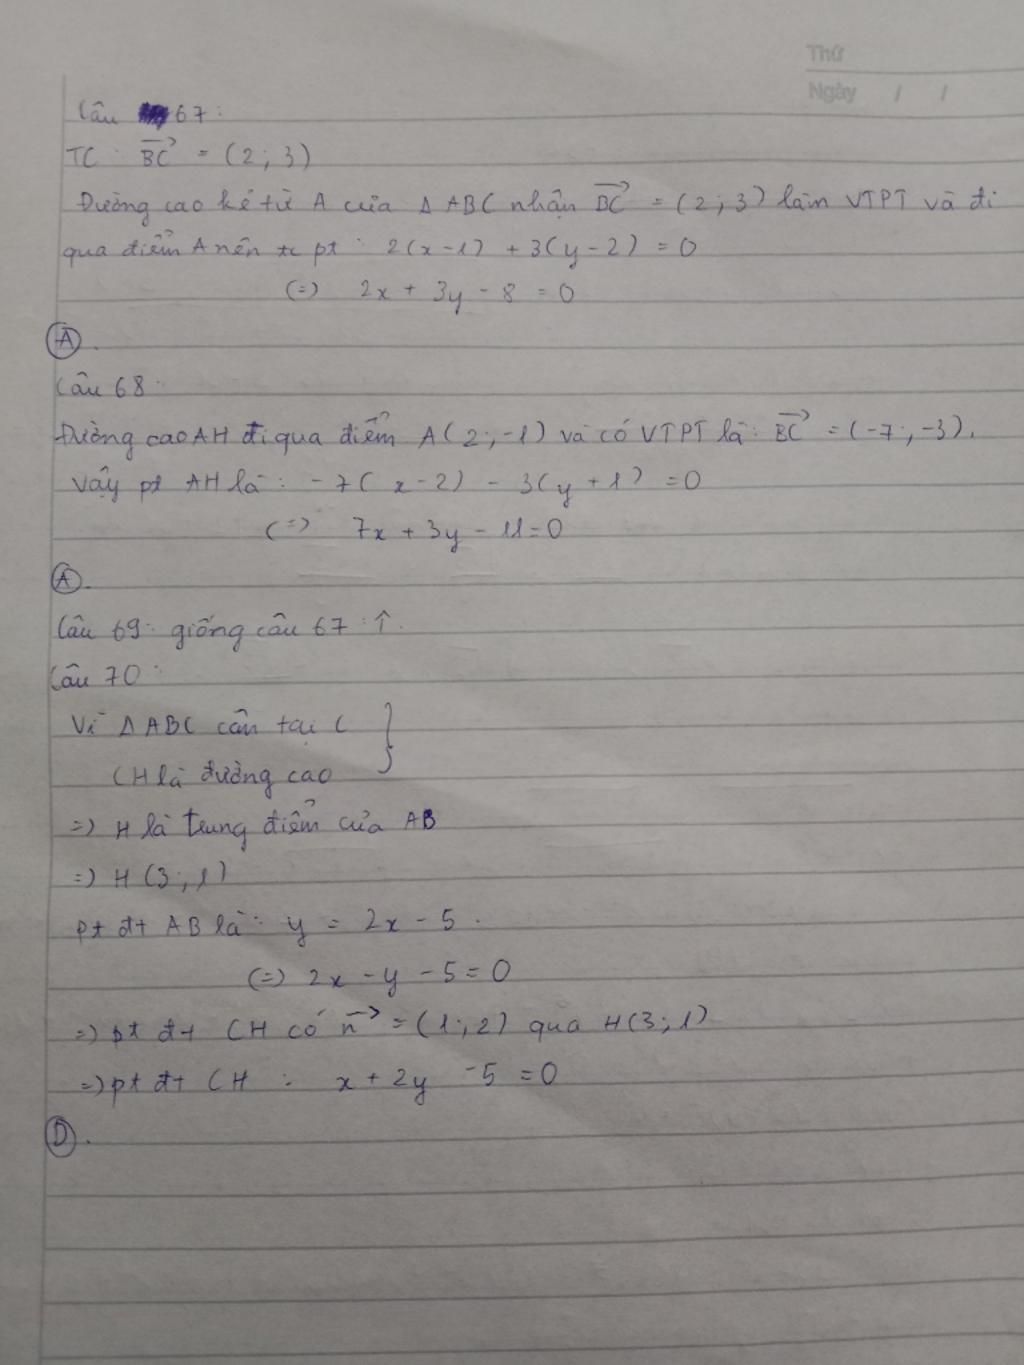 Thứ
Ngày / /
Câu 67:
TC: BC→ = (2; 3)
Đường cao kẻ từ A của Δ ABC nhận BC→ = (2; 3) làm VTPT và đi
qua điểm A nên pt: 2(x-1) + 3(y-2) = 0
(=) 2x + 3y - 8 = 0
(A).
Câu 68:
Đường cao AH đi qua điểm A(2; -1) và có VTPT là: BC→ = (-7; -3).
Vậy pt AH là: -7(x-2) - 3(y+1) = 0
(=) 7x + 3y - 11 = 0
(A).
Câu 69: giống câu 67 : ⇑.
Câu 70:
Vì Δ ABC cân tại C }
CH là đường cao
=) H là trung điểm của AB
=) H (3; 1)
pt đt AB là: y = 2x - 5.
(=) 2x - y - 5 = 0
=) pt đt CH có n→ = (1; 2) qua H(3; 1)
=) pt đt CH : x + 2y - 5 = 0
(D).